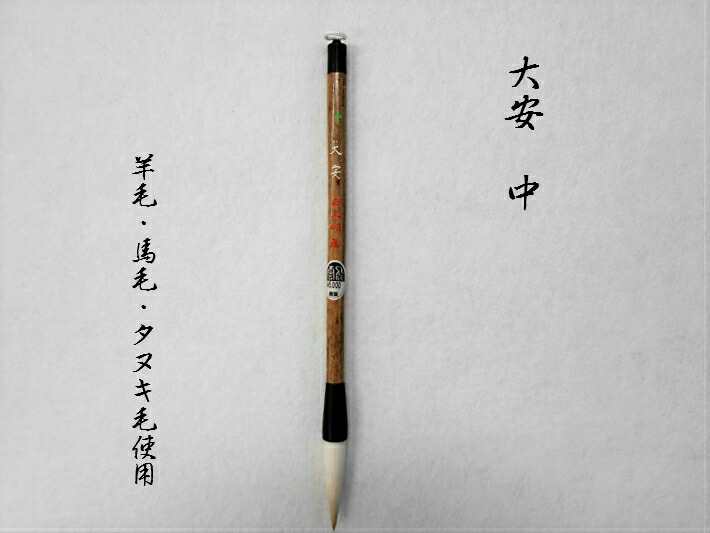 大安 中
中
大安
5,000
羊毛・馬毛・タヌキ毛使用